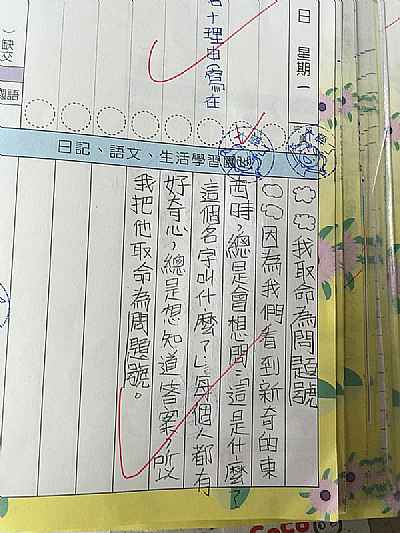 日 星期一
名+理由(寫在
日記、語文、生活學習園
我取命為問題號
因為我們看到新奇的東
西時,總是會想問:「這是什麼?
這個名字叫什麼?」每個人都有
好奇心,總是想知道答案,所以
我把他取命為問題號。
CoCo